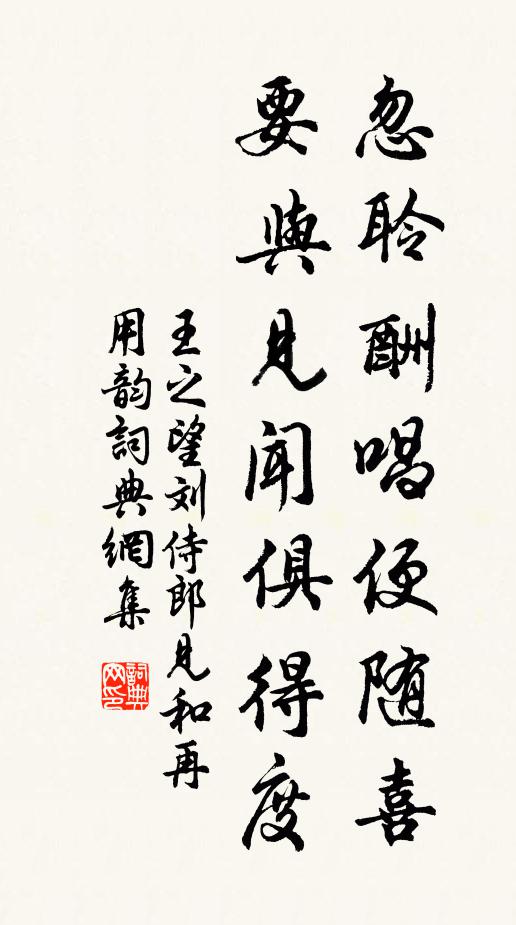 忽聆酬唱便随喜
要與見闻俱得度
王之望刘侍郎見和再
用韵詞典網集
詞典
网印